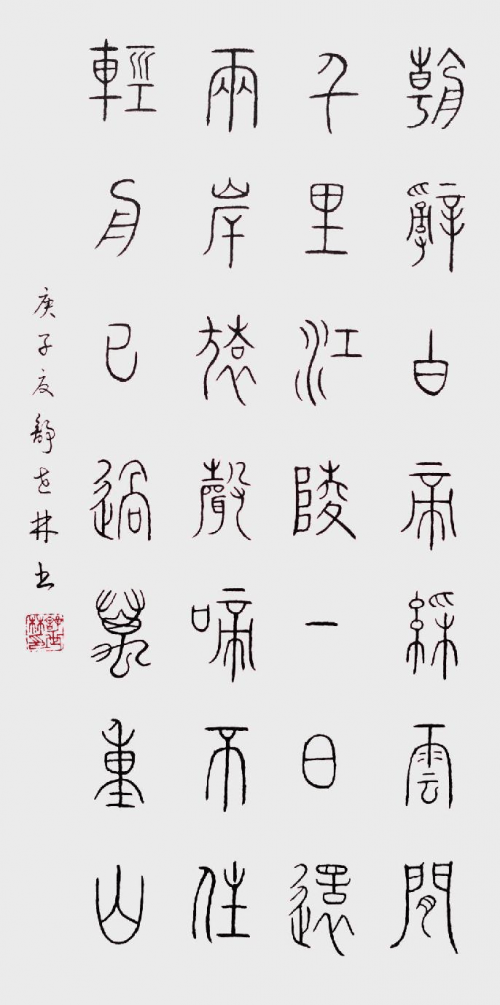 朝辭白帝綵雲間
千里江陵一日還
兩岸猿聲啼不住
輕舟已過萬重山
庚子夏舒林书